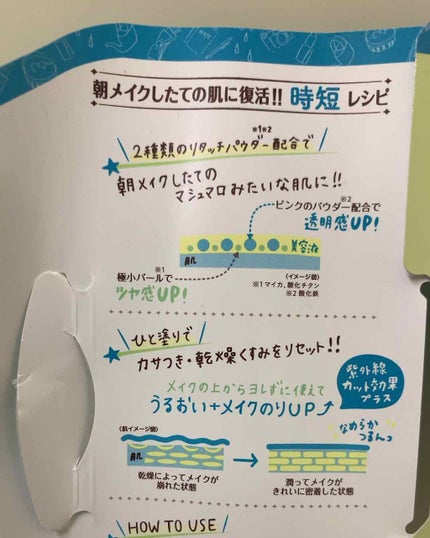 朝メイクしたての肌に復活!! 時短 レシピ
2種類のリタッチパウダー※1※2配合で
朝メイクしたての
マシュマロみたいな肌に!!
ピンクのパウダー※2配合で
透明感UP!
美容液
肌
極小パール※1で
ツヤ感UP!
(イメージ図)
※1 マイカ、酸化チタン
※2 酸化鉄
ひと塗りで
カサつき・乾燥くすみをリセット!!
メイクの上からヨレずに使えて
うるおい+メイクのりUP
紫外線
カット効果
プラス
(肌イメージ図)
なめらか
つるんっ
肌
乾燥によってメイクが
崩れた状態
潤ってメイクが
きれいに密着した状態
HOW TO USE